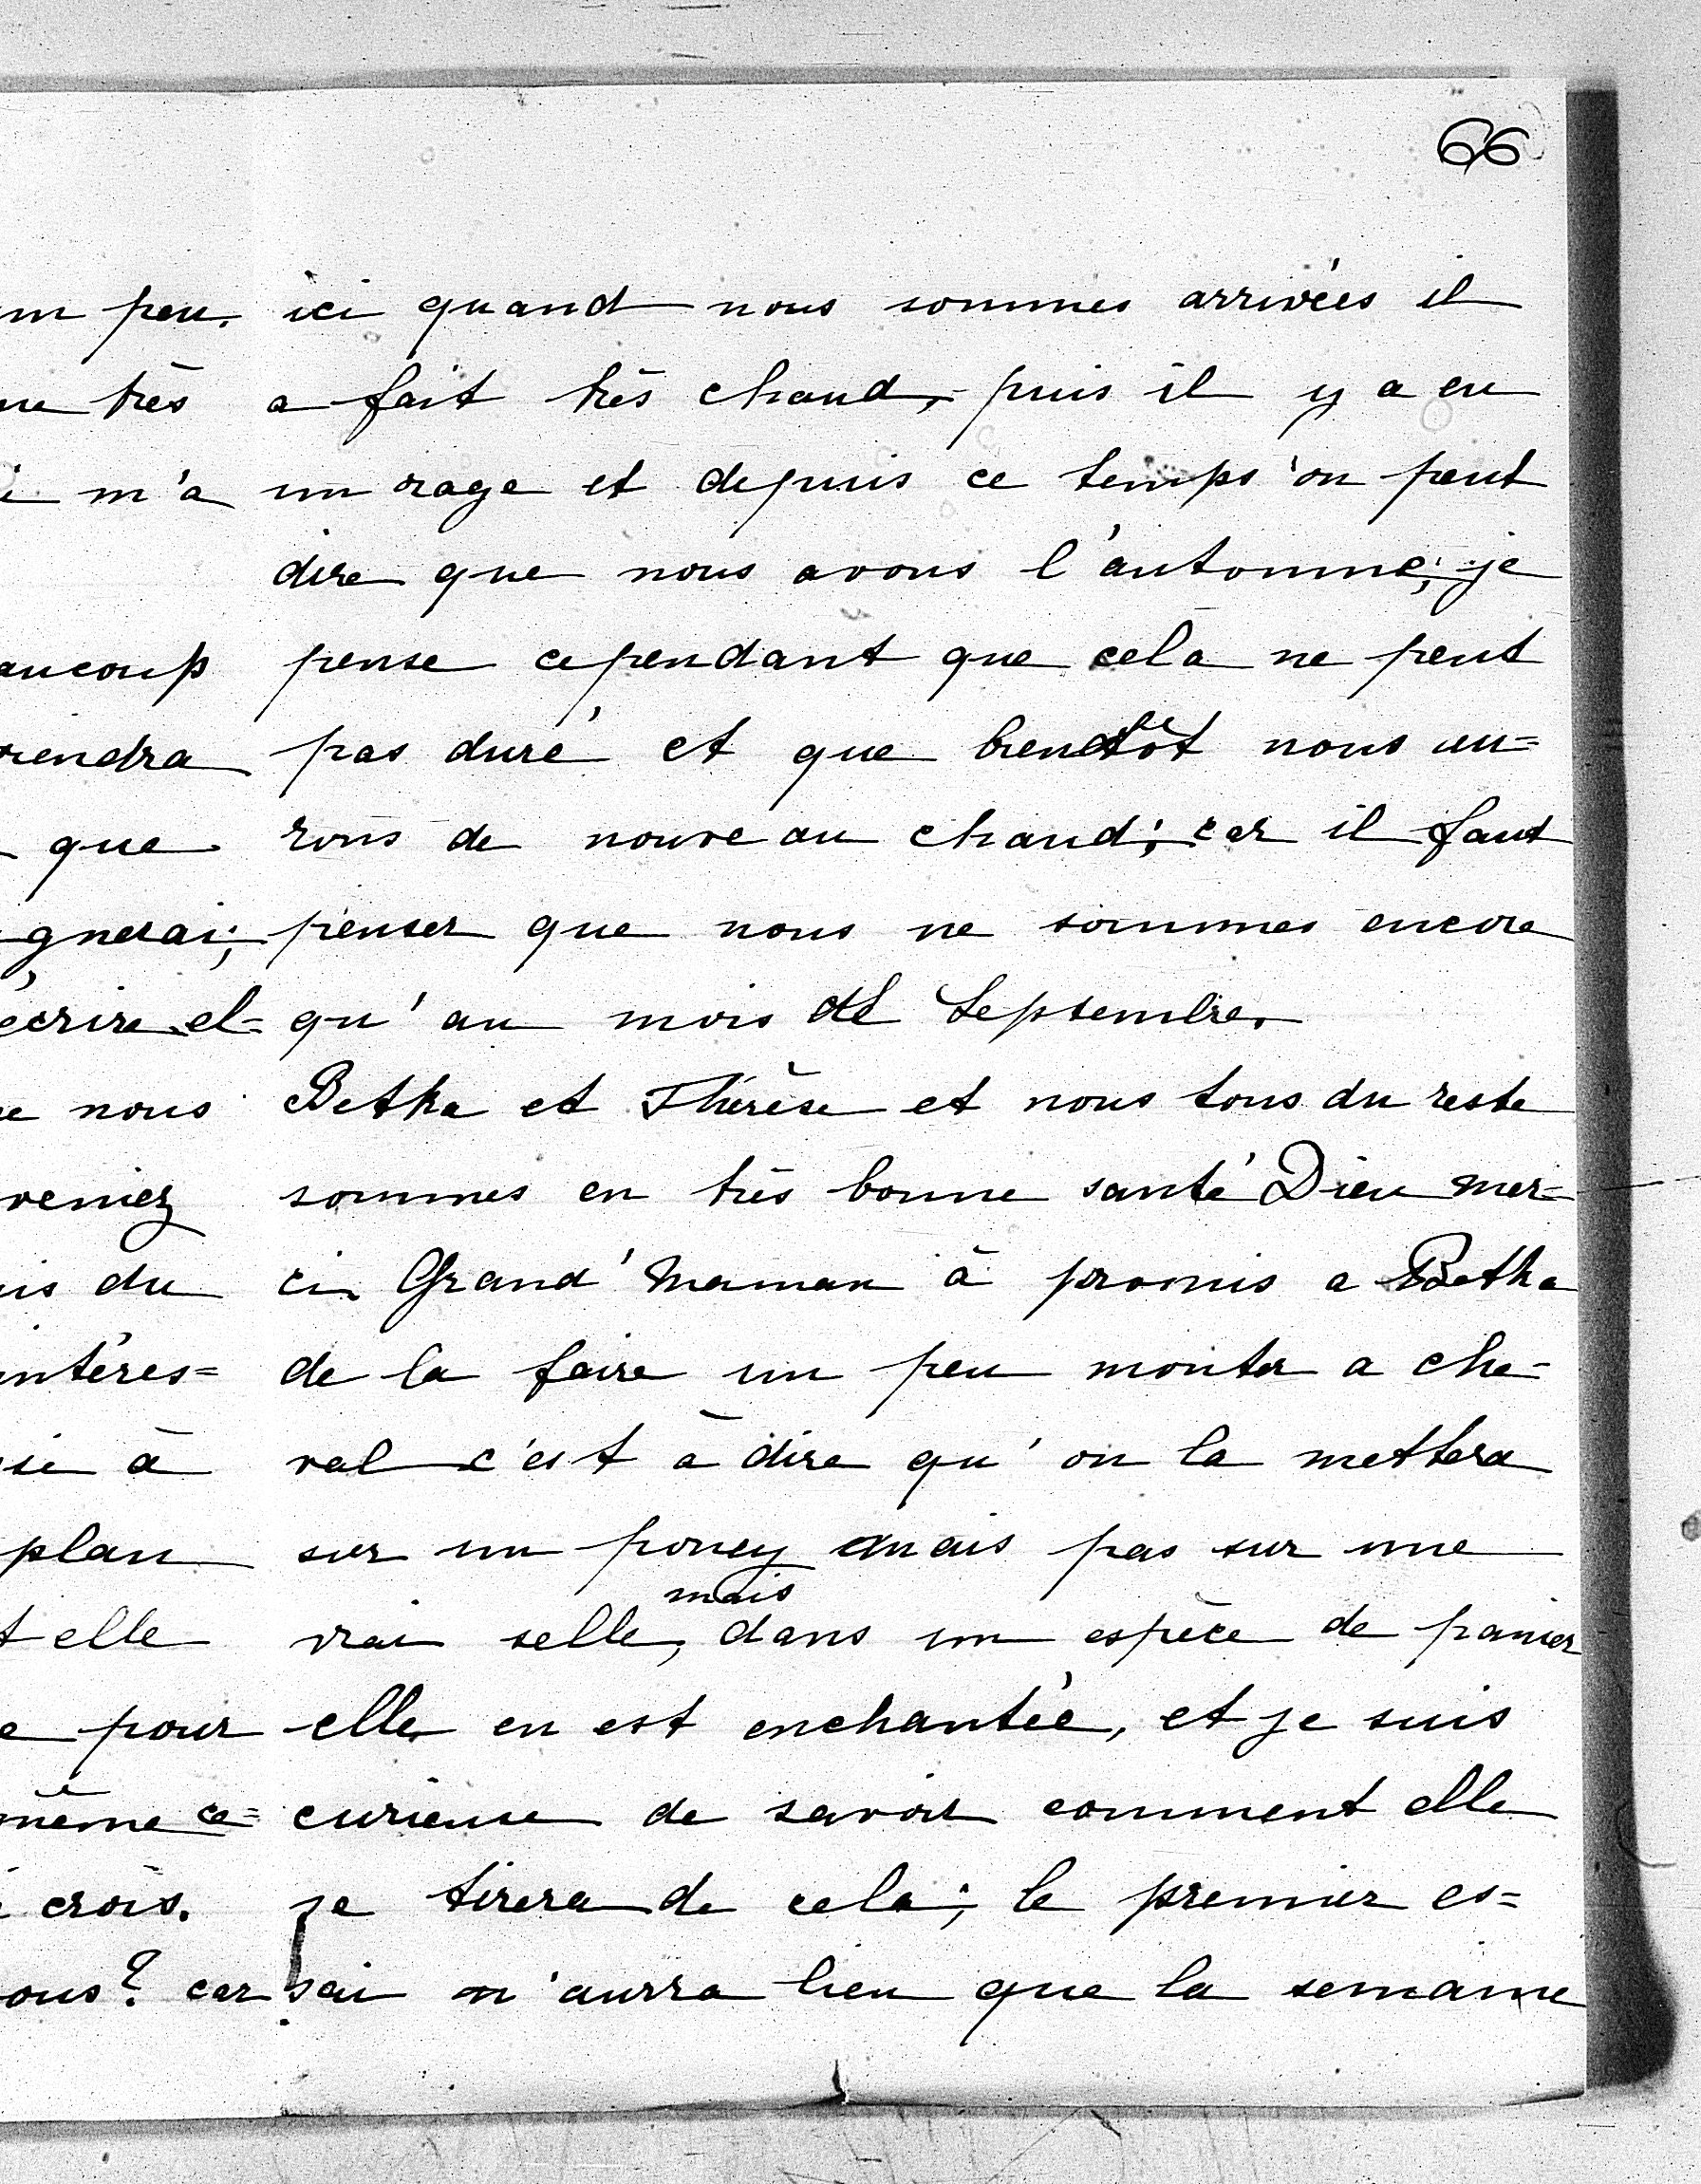 66
um peu.
ne très
i m'a
aucoup
iendra
que
gnerai;
écrire el=
e nous
veniez
is du
intéres=
si à
plan
t elle
e pour
même ce=
crois.
ous? car
ici quand nous sommes arrivées il
a fait très chaud, puis il y a eu
un orage et depuis ce temps on peut
dire que nous avons l'automne; je
pense cependant que cela ne peut
pas duré et que bientôt nous au=
rons de nouveau chaud; car il faut
penser que nous ne sommes encore
qu'au mois de Septembre.
Betka et Thérèse et nous tous du reste
sommes en très bonne santé Dieu mer=
ci. Grand'Maman à promis a Betka
de la faire un peu monter a che=
val c'est à dire qu'on la mettera
sur un poney mais pas sur une
vrai selle, mais dans un espèce de panier
elle en est enchantée, et je suis
curieuse de savoir comment elle
se tirera de cela; le premier es=
sai n'aurra lieu que la semaine